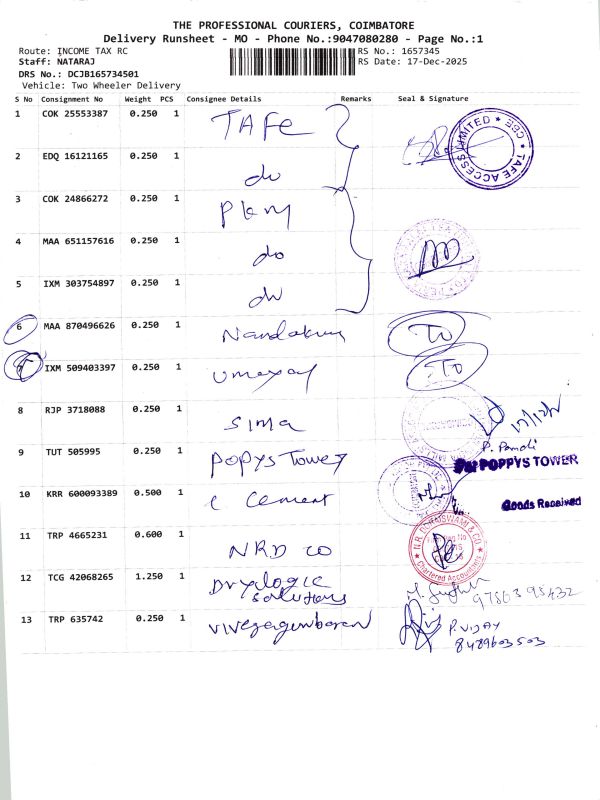 THE PROFESSIONAL COURIERS, COIMBATORE
Delivery Runsheet - MO - Phone No.:9047080280 - Page No.:1
Route: INCOME TAX RC RS No.: 1657345
Staff: NATARAJ RS Date: 17-Dec-2025
DRS No.: DCJB165734501
Vehicle: Two Wheeler Delivery
S No Consignment No Weight PCS Consignee Details Remarks Seal & Signature
1 COK 25553387 0.250 1 TAFE
TAFE ACCESS LIMITED ★ CBE ★
2 EDQ 16121165 0.250 1 do
3 COK 24866272 0.250 1
4 MAA 651157616 0.250 1 do
5 IXM 303754897 0.250 1 do
6 MAA 870496626 0.250 1 To
7 IXM 509403397 0.250 1 To
8 RJP 3718088 0.250 1 Sima 17/12/
9 TUT 505995 0.250 1 Popys Tower
POPPYS TOWER
10 KRR 600093389 0.500 1 Cement
Goods Received
11 TRP 4665231 0.600 1 NRD co
Chartered Accountants
12 TCG 42068265 1.250 1 solutions
13 TRP 635742 0.250 1 P. VIJAY
8489603503